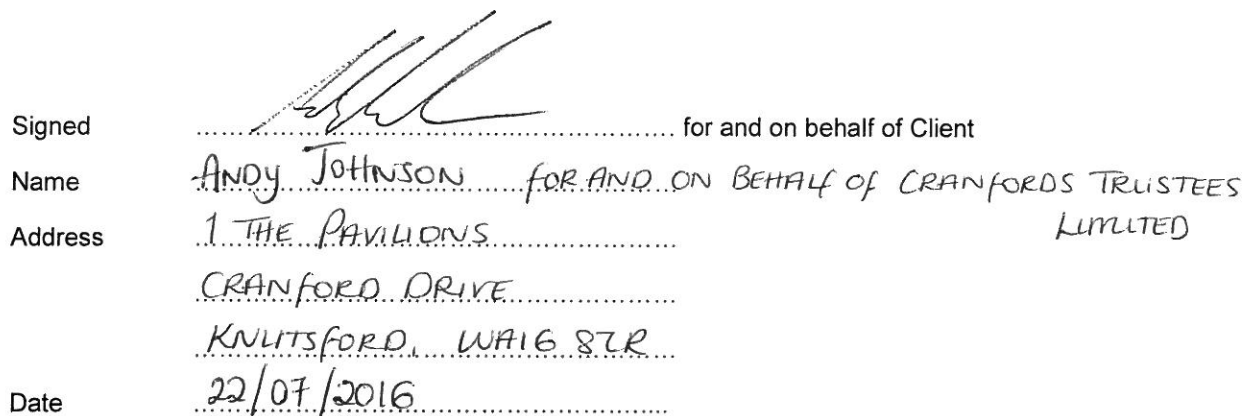 Signed for and on behalf of Client
Name ANDY JOHNSON FOR AND ON BEHALF OF CRANFORDS TRUSTEES
LIMITED
Address 1 THE PAVILIONS
CRANFORD DRIVE
KNUTSFORD, WA16 8ZR
Date 22/07/2016